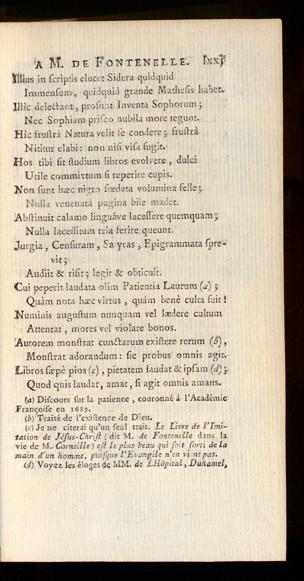 A M. DE FONTENELLE. [xxj
Illius in scriptis elucet Sidera quidquid
Immensum, quidquid grande Mathesis habet.
Illic delectant, prosunt Inventa Sophorum;
Nec Sophiam prisco nubila more tegunt.
Hic frustrà Natura velit se condere; frustrà
Nititur elabi: non nisi visa fugit.
Hos tibi sit studium libros evolvere, dulci
Utile commixtum si reperire cupis.
Non sunt hæc nigro fœdata volumina felle;
Nulla venenatâ pagina bile madet.
Abstinuit calamo linguâve lacessere quemquam;
Nulla lacessitum tela ferire queunt.
Jurgia, Censuram, Sa yras, Epigrammata spre-
vit;
Audiit & risit; legit & obticuit.
Cui peperit laudata olim Patientia Laurum (a);
Quàm nota hæc virtus, quàm benè culta fuit!
Numinis augustum nunquam vel lædere cultum
Attentat, mores vel violare bonos.
Autorem monstrat cunctarum existere rerum (b),
Monstrat adorandum: sic probus omnis agit.
Libros sæpè pios (c), pietatem laudat & ipsam (d);
Quod quis laudat, amat, si agit omnis amans.
(a) Discours sur la patience, couronné à l'Académie
Françoise en 1689.
(b) Traité de l'existence de Dieu.
(c) Je ne citerai qu'un seul trait. Le Livre de l'Imi-
tation de Jésus-Christ (dit M. de Fontenelle dans la
vie de M. Corneille) est le plus beau qui soit sorti de la
main d'un homme, puisque l'Evangile n'en vient pas.
(d) Voyez les éloges de MM. de L'Hôpital, Duhamel,